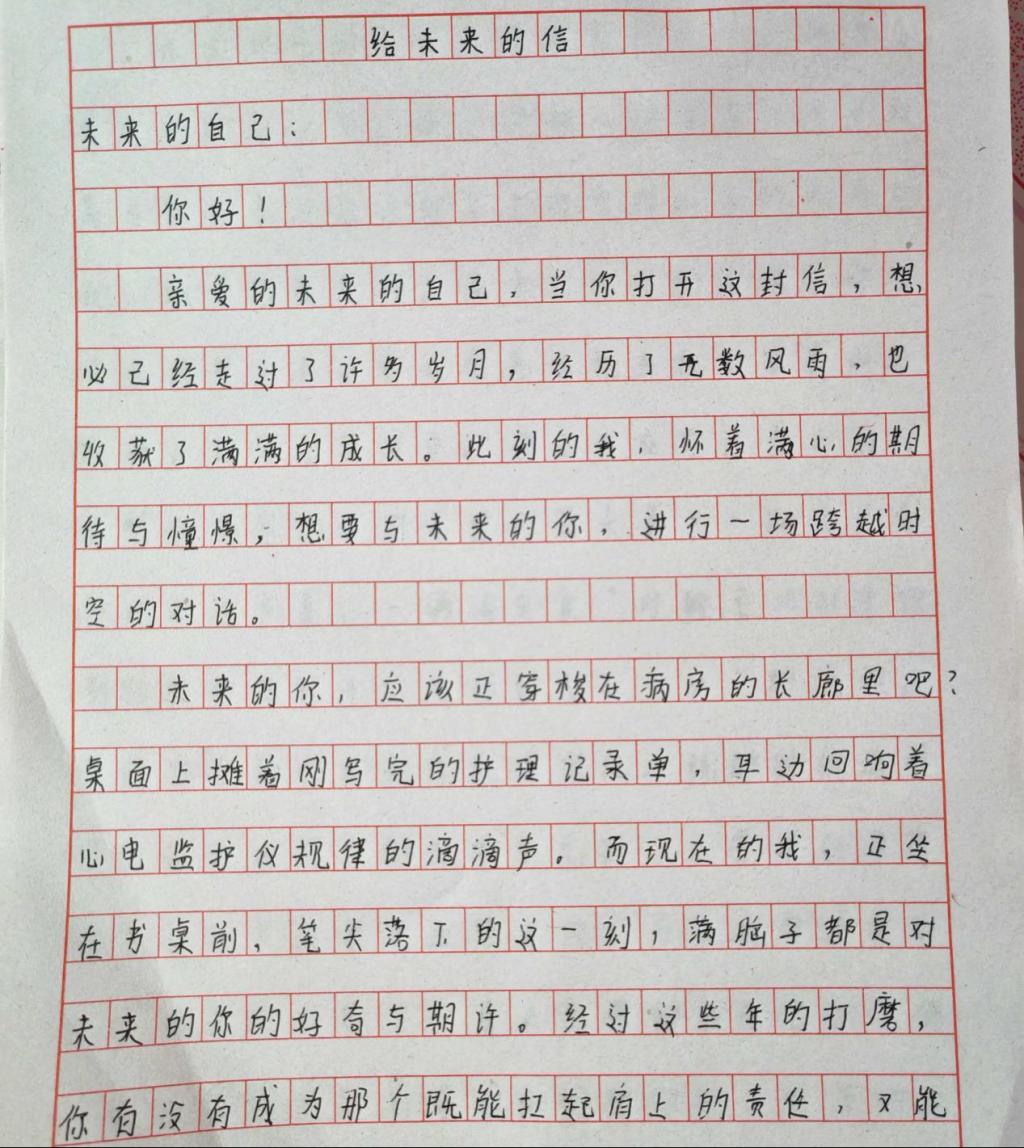 给未来的信
未来的自己：
你好！
亲爱的未来的自己，当你打开这封信，想
必己经走过了许多岁月，经历了无数风雨，也
收获了满满的成长。此刻的我，怀着满心的期
待与憧憬，想要与未来的你，进行一场跨越时
空的对话。
未来的你，应该正穿梭在病房的长廊里吧？
桌面上摊着刚写完的护理记录单，耳边回响着
心电监护仪规律的滴滴声。而现在的我，正坐
在书桌前，笔尖落下的这一刻，满脑子都是对
未来的你的好奇与期许。经过这些年的打磨，
你有没有成为那个既能扛起肩上的责任，又能